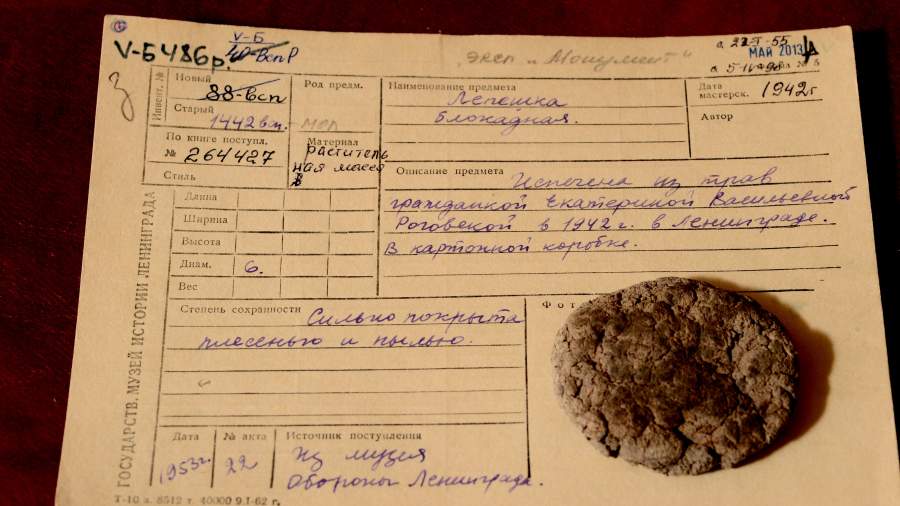 V-Б
V-Б486р.
40-Вспр
"Эксп „Монумент"
с 22-I-55
МАЙ 2013
с 5-IV-90
Инвент. №
Новый
88-всп
Старый
1442 всп.
По книге поступл.
№ 264427
Стиль
Род предм.
Материал
растительная масса
Наименование предмета
Лепешка
блокадная.
Дата
мастерск. 1942г
Автор
Описание предмета Испечена из трав
гражданкой Екатериной Васильевной
Роговской в 1942 г. в Ленинграде.
В картонной коробке.
Длина
Ширина
Высота
Диам. 6.
Вес
Степень сохранности Сильно покрыта
плесенью и пылью.
Фот
Дата
1953г.
№ акта
22
Источник поступления
Из музея
Обороны Ленинграда.
ГОСУДАРСТВ. МУЗЕЙ ИСТОРИИ ЛЕНИНГРАДА
Т-10 з. 8512 т. 40000 9.I-62 г.